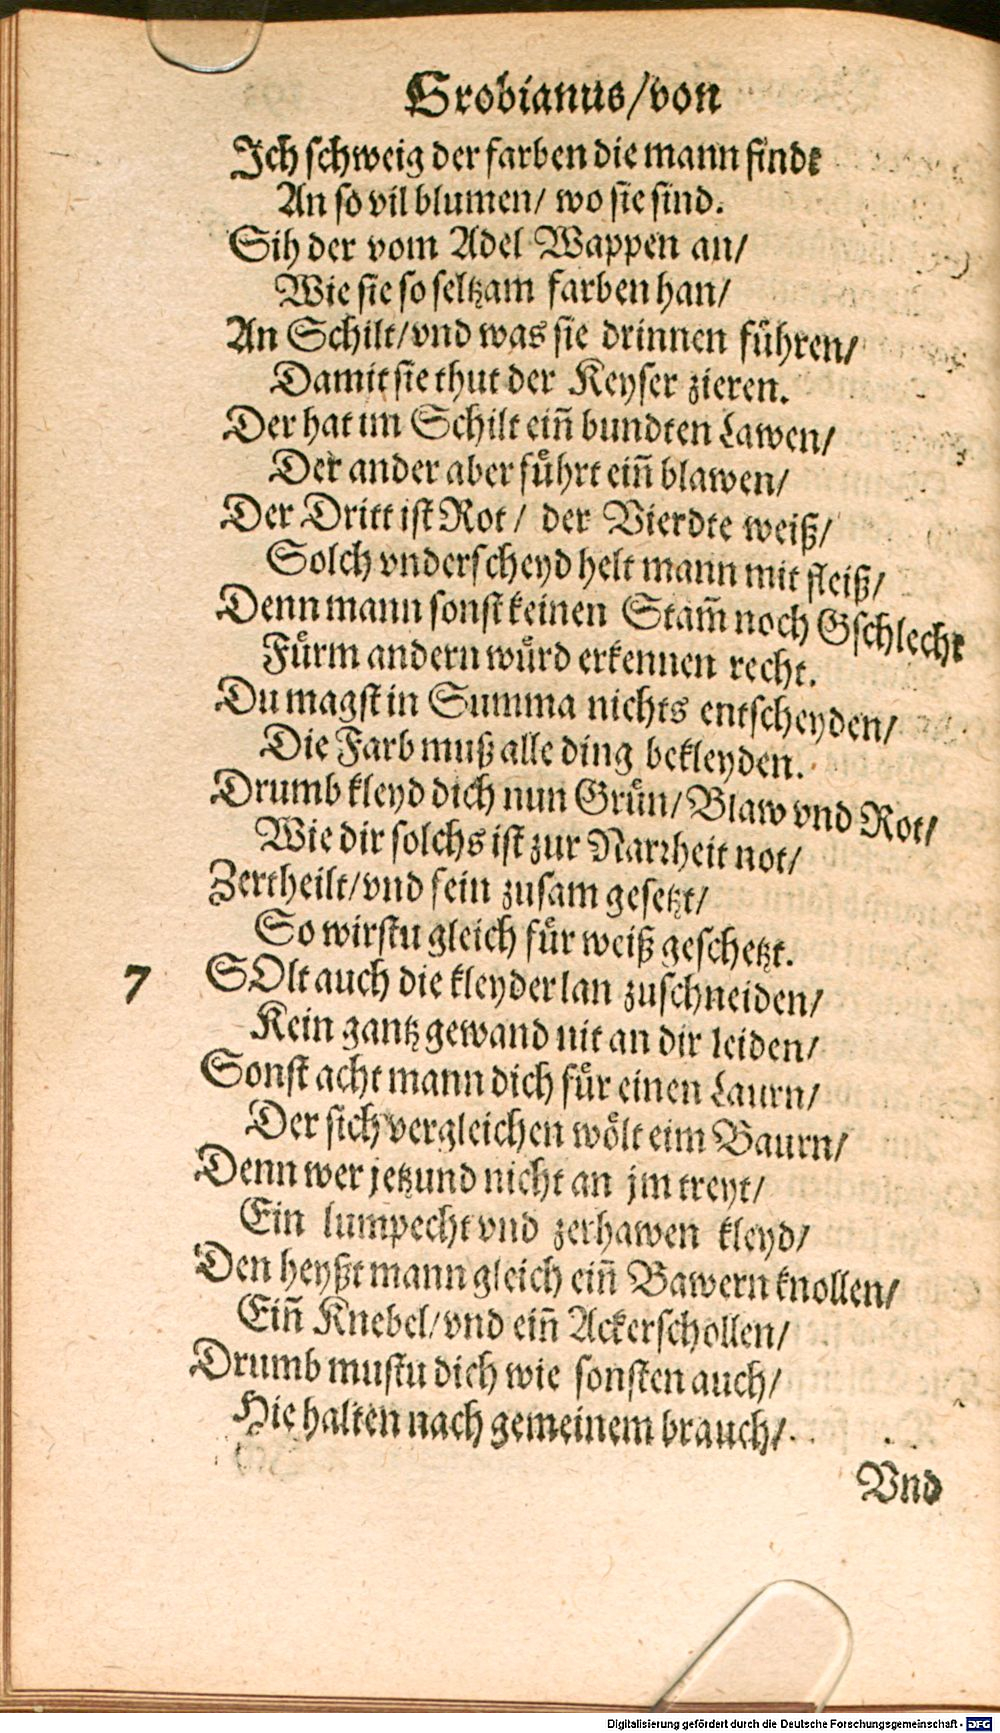 Grobianus/von
Ich schweig der farben die mann findt
An so vil blumen/ wo sie sind.
Sih der vom Adel Wappen an/
Wie sie so seltzam farben han/
An Schilt/vnd was sie drinnen fuͤhren/
Damit sie thut der Keyser zieren.
Der hat im Schilt ein̄ bundten Lawen/
Der ander aber fuͤhrt ein̄ blawen/
Der Dritt ist Rot/ der Vierdte weiß/
Solch vnderscheyd helt mann mit fleiß/
Denn mann sonst keinen Stam̄ noch Gschlecht
Fuͤrm andern wuͤrd erkennen recht.
Du magst in Summa nichts entscheyden/
Die Farb muß alle ding bekleyden.
Drumb kleyd dich nun Gruͤn/Blaw vnd Rot/
Wie dir solchs ist zur Narrheit not/
Zertheilt/vnd fein zusam gesetzt/
So wirstu gleich fuͤr weiß geschetzt.
7 SOlt auch die kleyder lan zuschneiden/
Kein gantz gewand nit an dir leiden/
Sonst acht mann dich fuͤr einen Laurn/
Der sich vergleichen woͤlt eim Baurn/
Denn wer jetzund nicht an jm treyt/
Ein lumpecht vnd zerhawen kleyd/
Den heyßt mann gleich ein̄ Bawern knollen/
Ein̄ Knebel/vnd ein̄ Ackerschollen/
Drumb mustu dich wie sonsten auch/
Hie halten nach gemeinem brauch/
Vnd
Digitalisierung gefördert durch die Deutsche Forschungsgemeinschaft - DFG